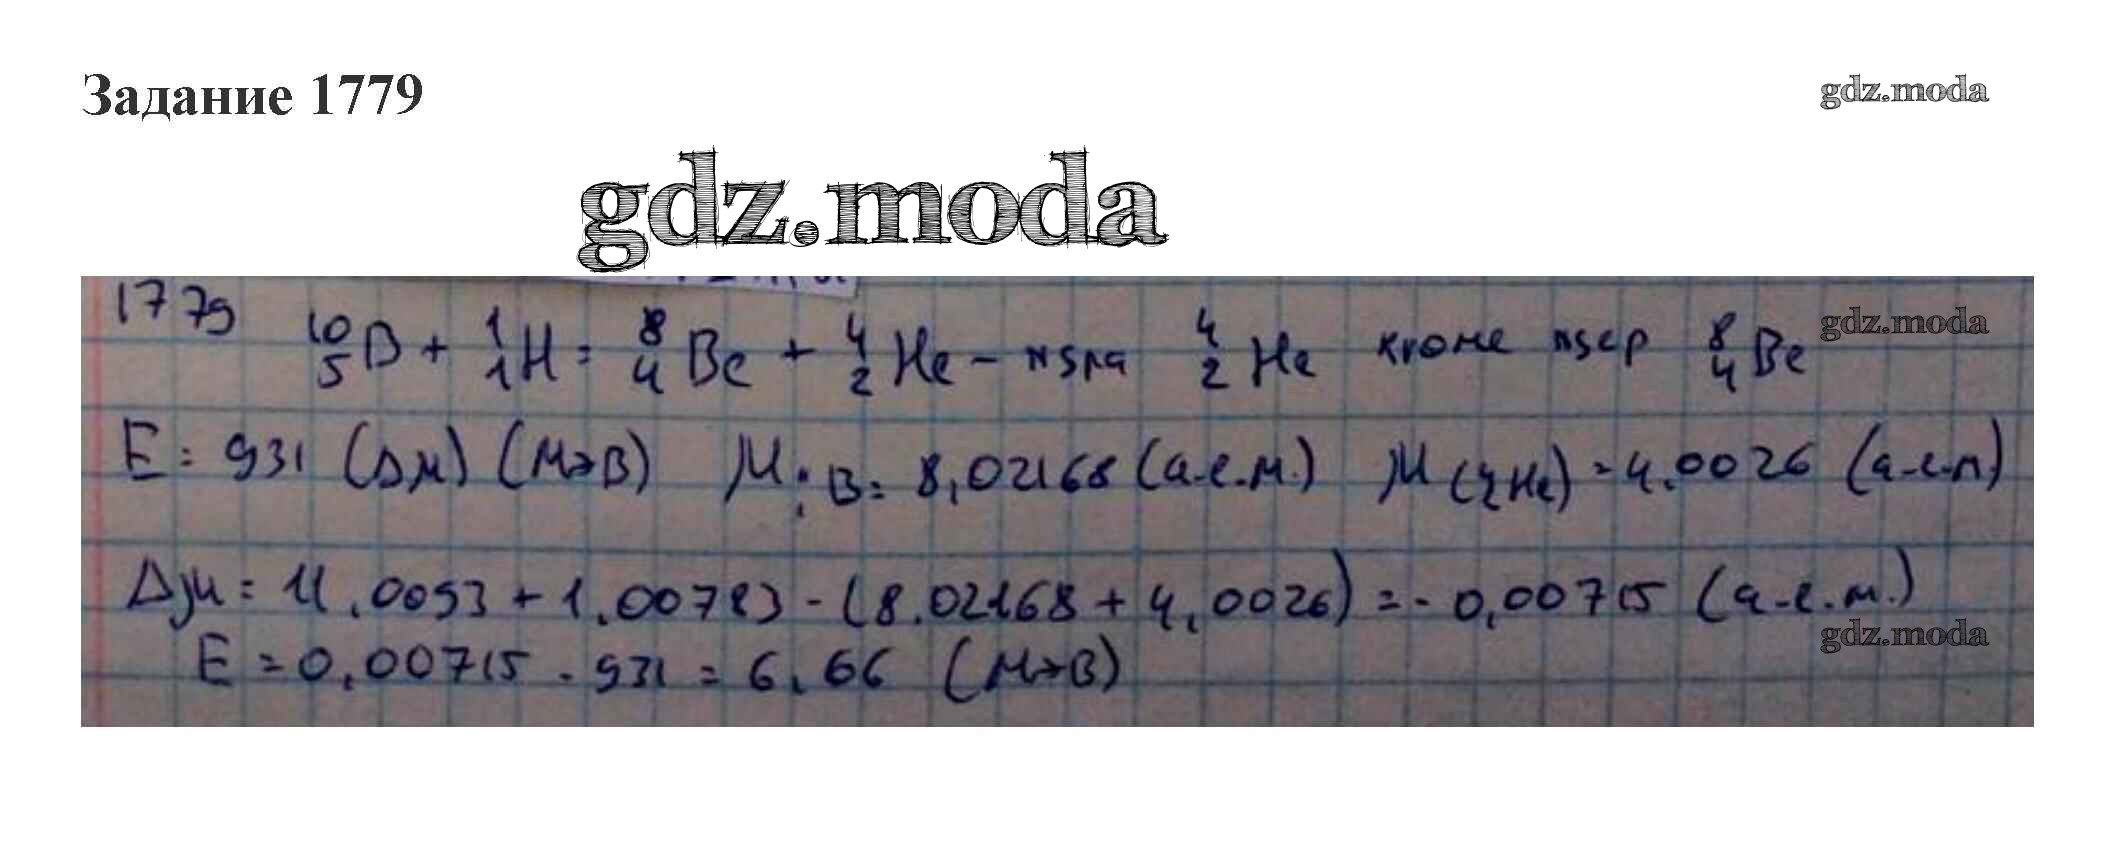 Задание 1779
gdz.moda
gdz.moda
1779
¹⁰₅B + ¹₁H = ⁸₄Be + ⁴₂He - ядра ⁴₂He кроме ядер ⁸₄Be
gdz.moda
E = 931 (ΔM) (МэВ) M : B = 8,02168 (а.е.м.) M (⁴₂He) = 4,0026 (а.е.м)
Δμ = 11,0093 + 1,00783 - (8,02168 + 4,0026) = - 0,00715 (а.е.м.)
gdz.moda
E = 0,00715 . 931 = 6,66 (МэВ)